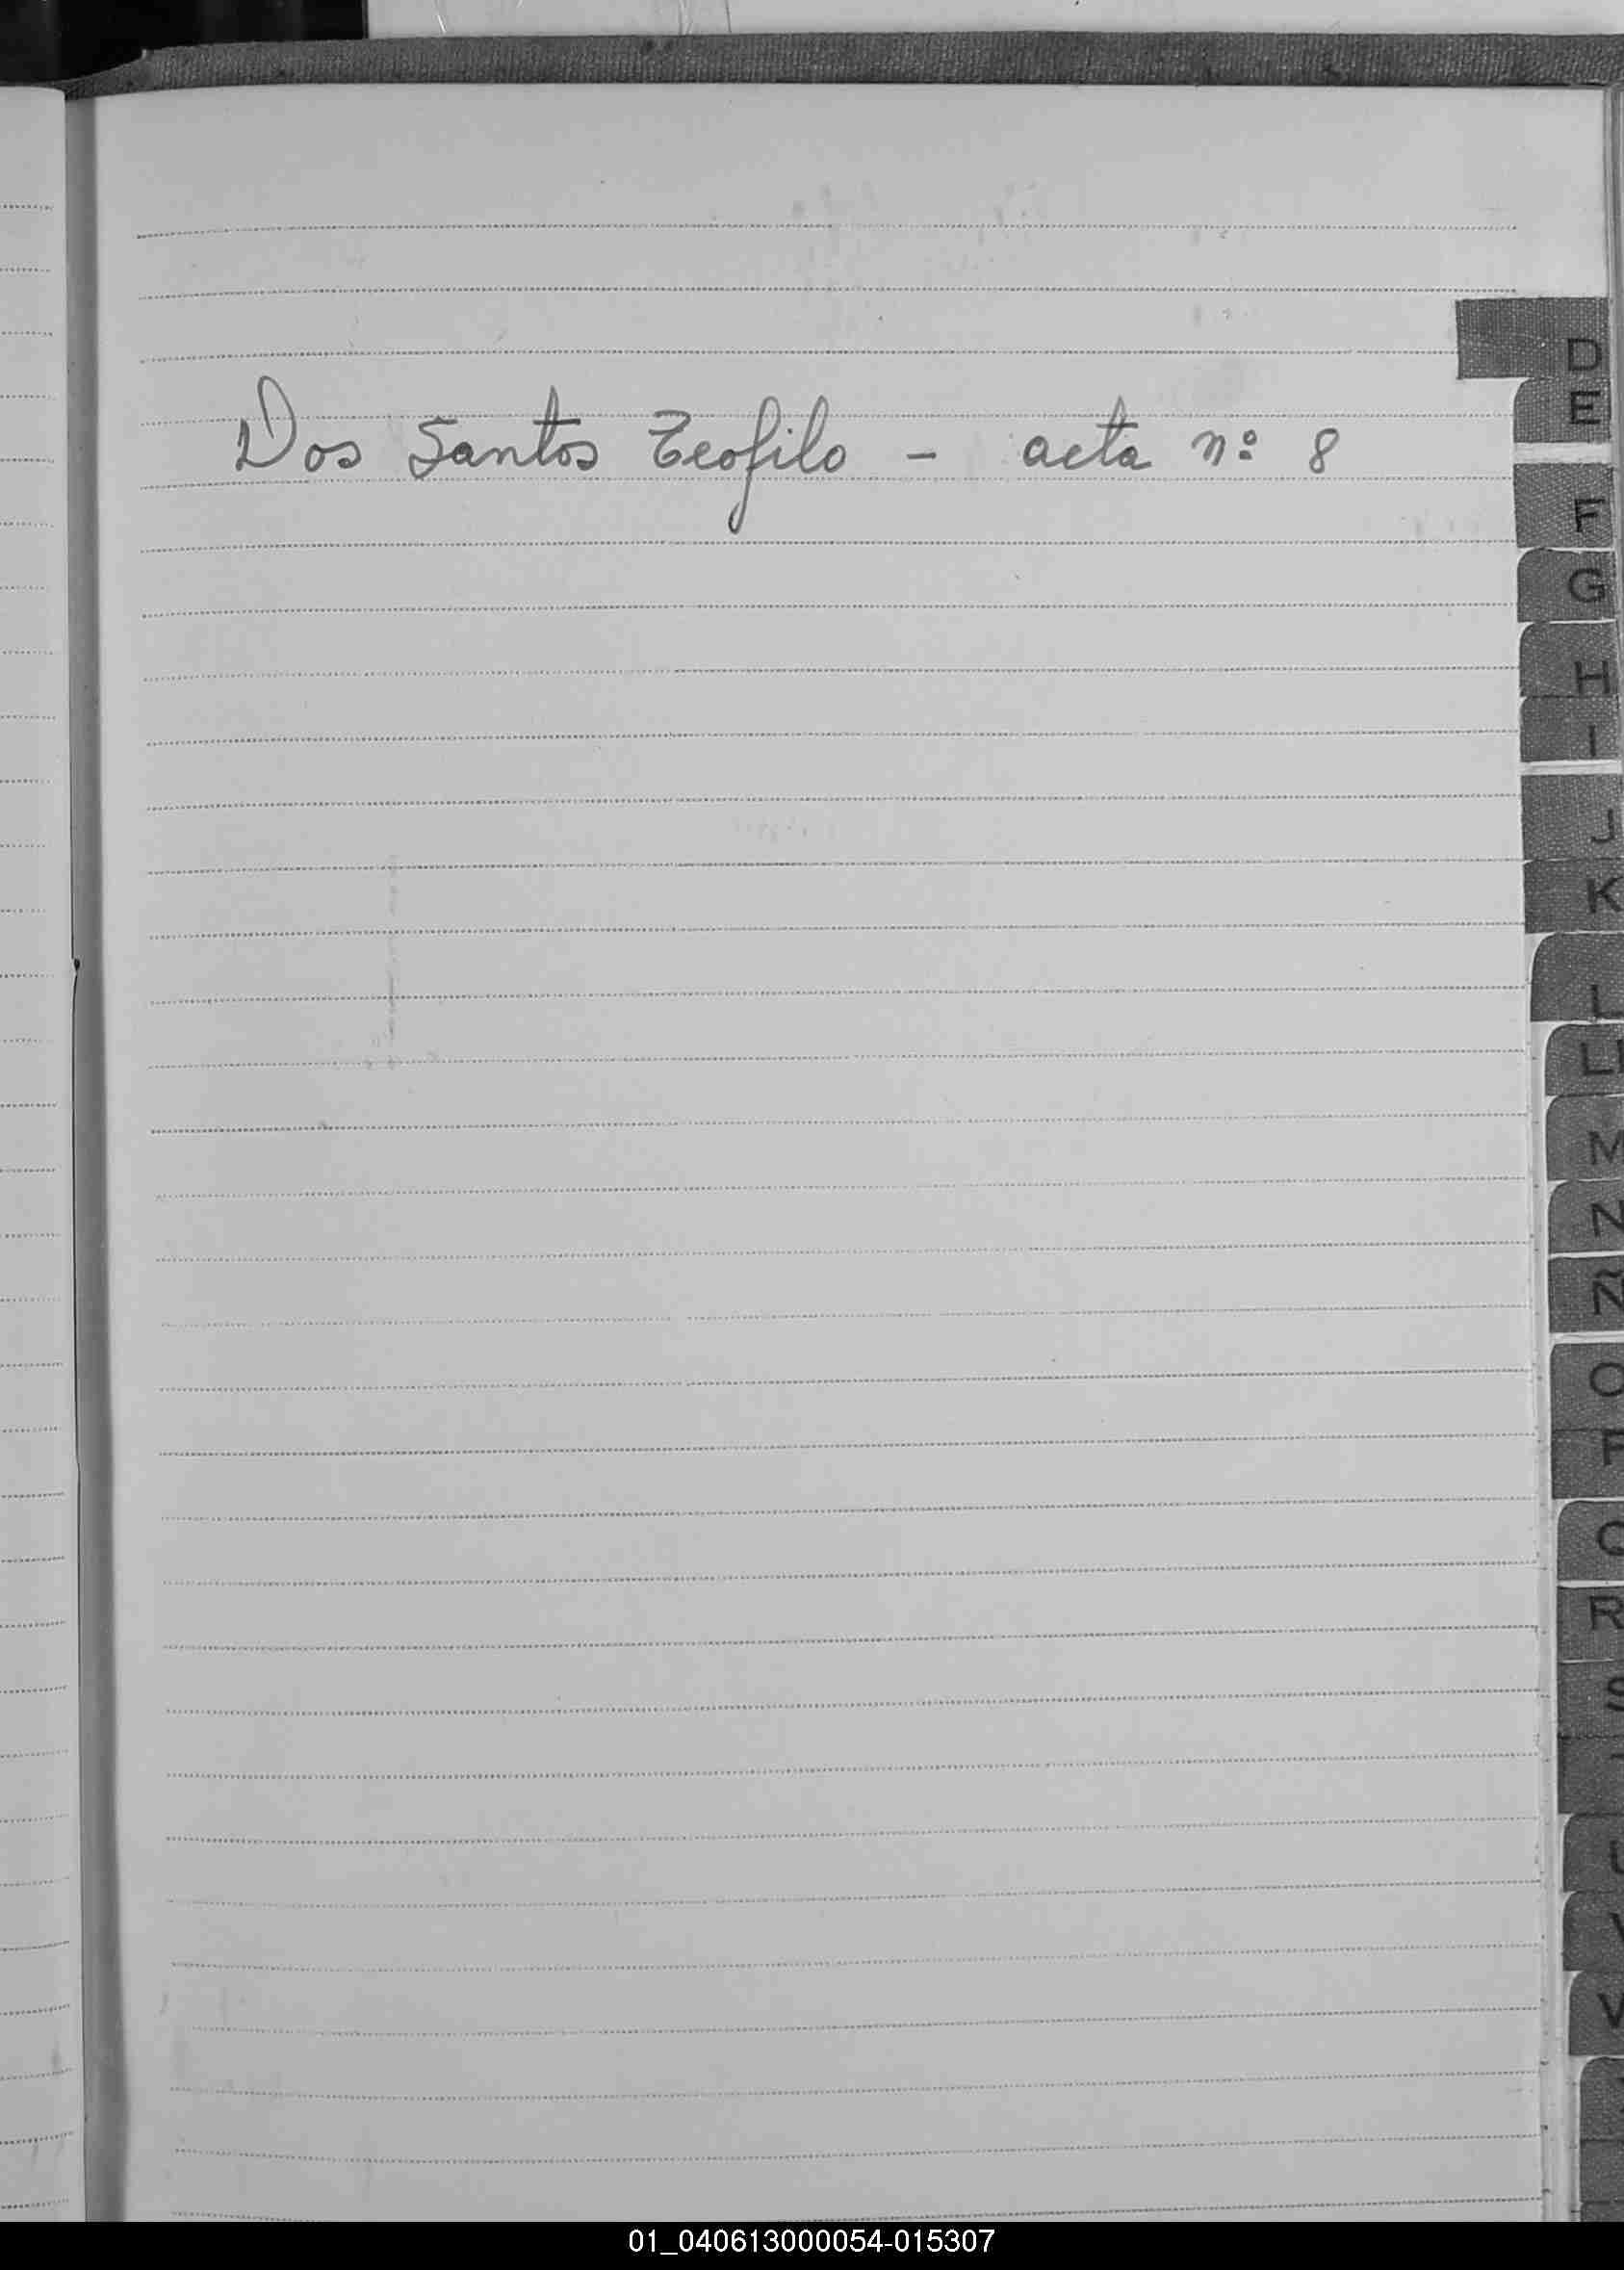 Dos Santos Teofilo - acta nº 8
D
E
F
G
H
I
J
K
L
Ll
M
N
Ñ
O
P
R
S
U
V
01_040613000054-015307